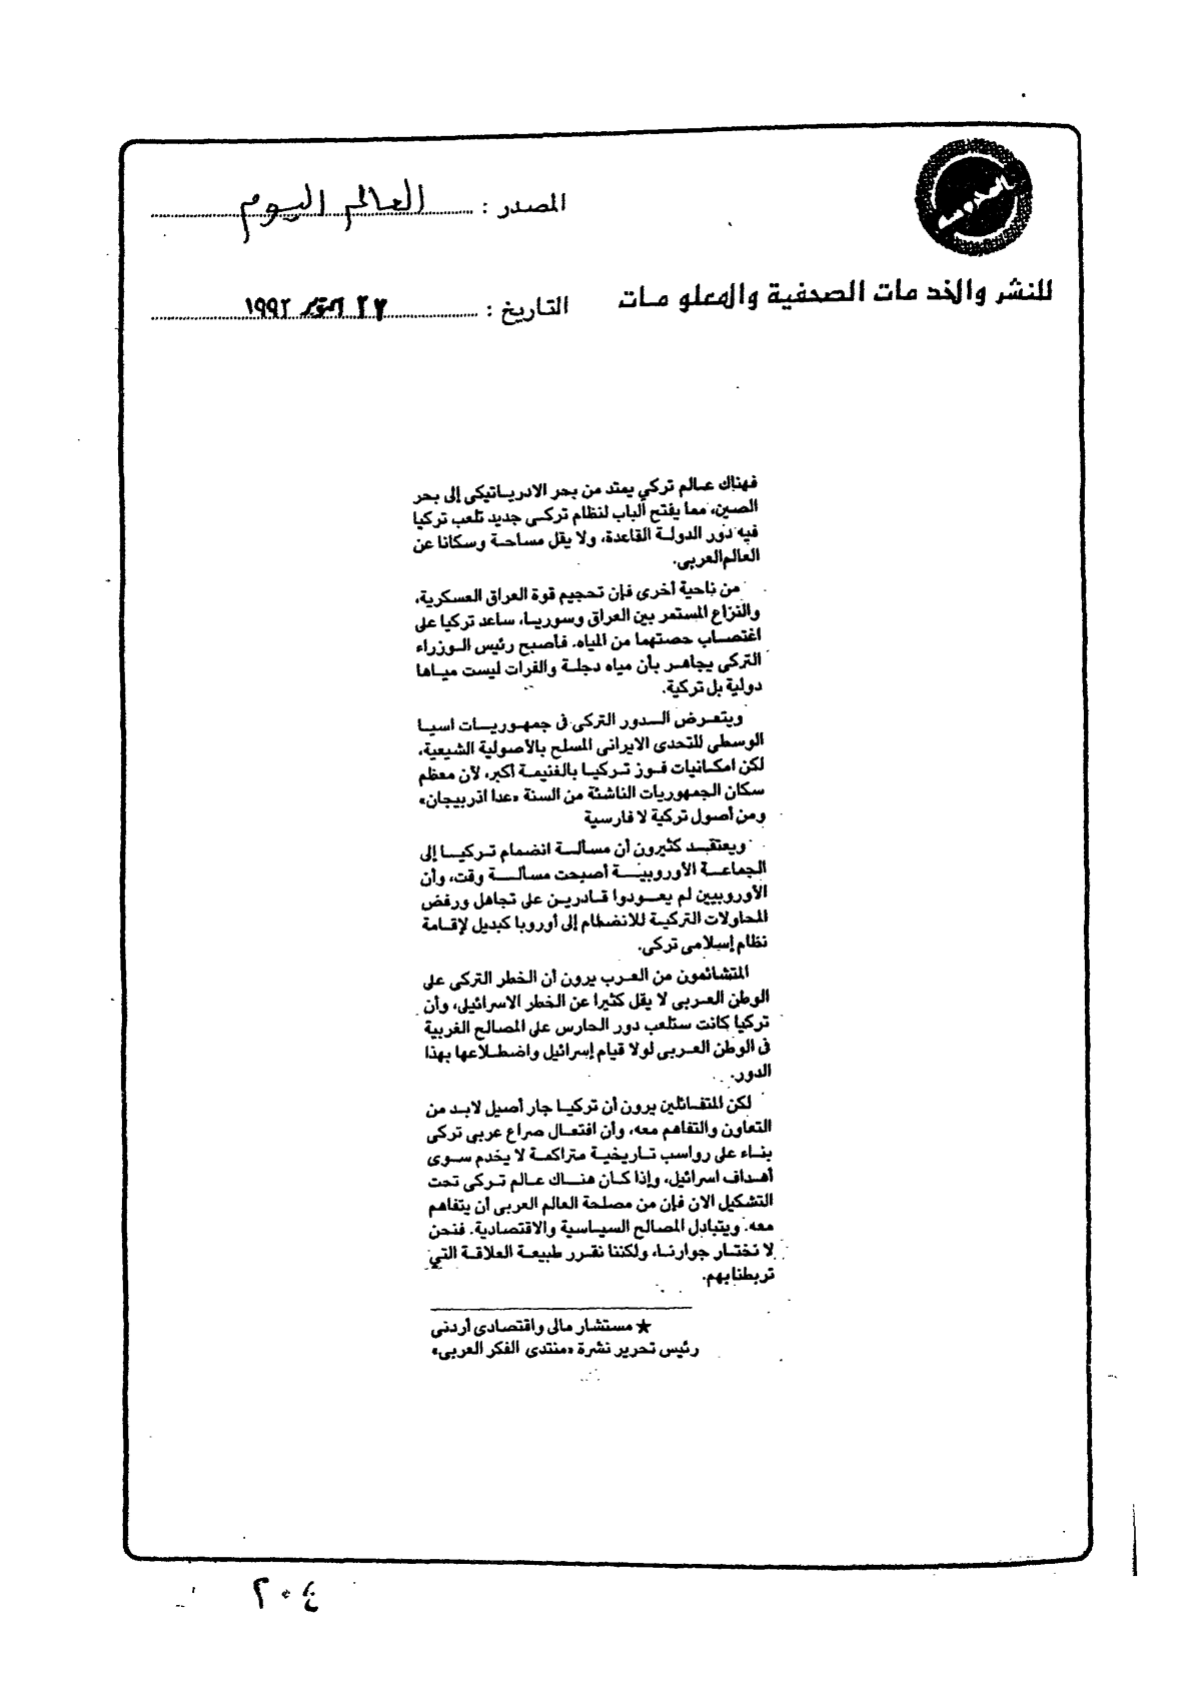 المصدر : العالم اليوم
للنشر والخدمات الصحفية والمعلومات
التاريخ : ٢٧ أكتوبر ١٩٩٢
فهناك عالم تركي يمتد من بحر الادرياتيكى إلى بحر
الصين، مما يفتح الباب لنظام تركى جديد تلعب تركيا
فيه دور الدولة القاعدة، ولا يقل مساحة وسكانا عن
العالم العربى.
من ناحية أخرى فإن تحجيم قوة العراق العسكرية،
والنزاع المستمر بين العراق وسوريا، ساعد تركيا على
اغتصاب حصتهما من المياه. فأصبح رئيس الوزراء
التركى يجاهر بأن مياه دجلة والفرات ليست مياها
دولية بل تركية.
ويتعرض الدور التركى فى جمهوريات اسيا
الوسطى للتحدى الايرانى المسلح بالأصولية الشيعية،
لكن امكانيات فوز تركيا بالغنيمة أكبر، لأن معظم
سكان الجمهوريات الناشئة من السنة «عدا اذربيجان»
ومن أصول تركية لا فارسية
ويعتقد كثيرون أن مسألة انضمام تركيا إلى
الجماعة الأوروبية أصبحت مسألة وقت، وأن
الأوروبيين لم يعودوا قادرين على تجاهل ورفض
المحاولات التركية للانضمام إلى أوروبا كبديل لإقامة
نظام إسلامى تركى.
المتشائمون من العرب يرون أن الخطر التركى على
الوطن العربى لا يقل كثيرا عن الخطر الاسرائيلى، وأن
تركيا كانت ستلعب دور الحارس على المصالح الغربية
فى الوطن العربى لولا قيام إسرائيل واضطلاعها بهذا
الدور.
لكن المتفائلين يرون أن تركيا جار أصيل لابد من
التعاون والتفاهم معه، وأن افتعال صراع عربى تركى
بناء على رواسب تاريخية متراكمة لا يخدم سوى
أهداف اسرائيل، وإذا كان هناك عالم تركى تحت
التشكيل الان فإن من مصلحة العالم العربى أن يتفاهم
معه. ويتبادل المصالح السياسية والاقتصادية. فنحن
لا نختار جوارنا، ولكننا نقرر طبيعة العلاقة التي
تربطنا بهم.
★ مستشار مالى واقتصادى أردنى
رئيس تحرير نشرة «منتدى الفكر العربى»
٢٠٤